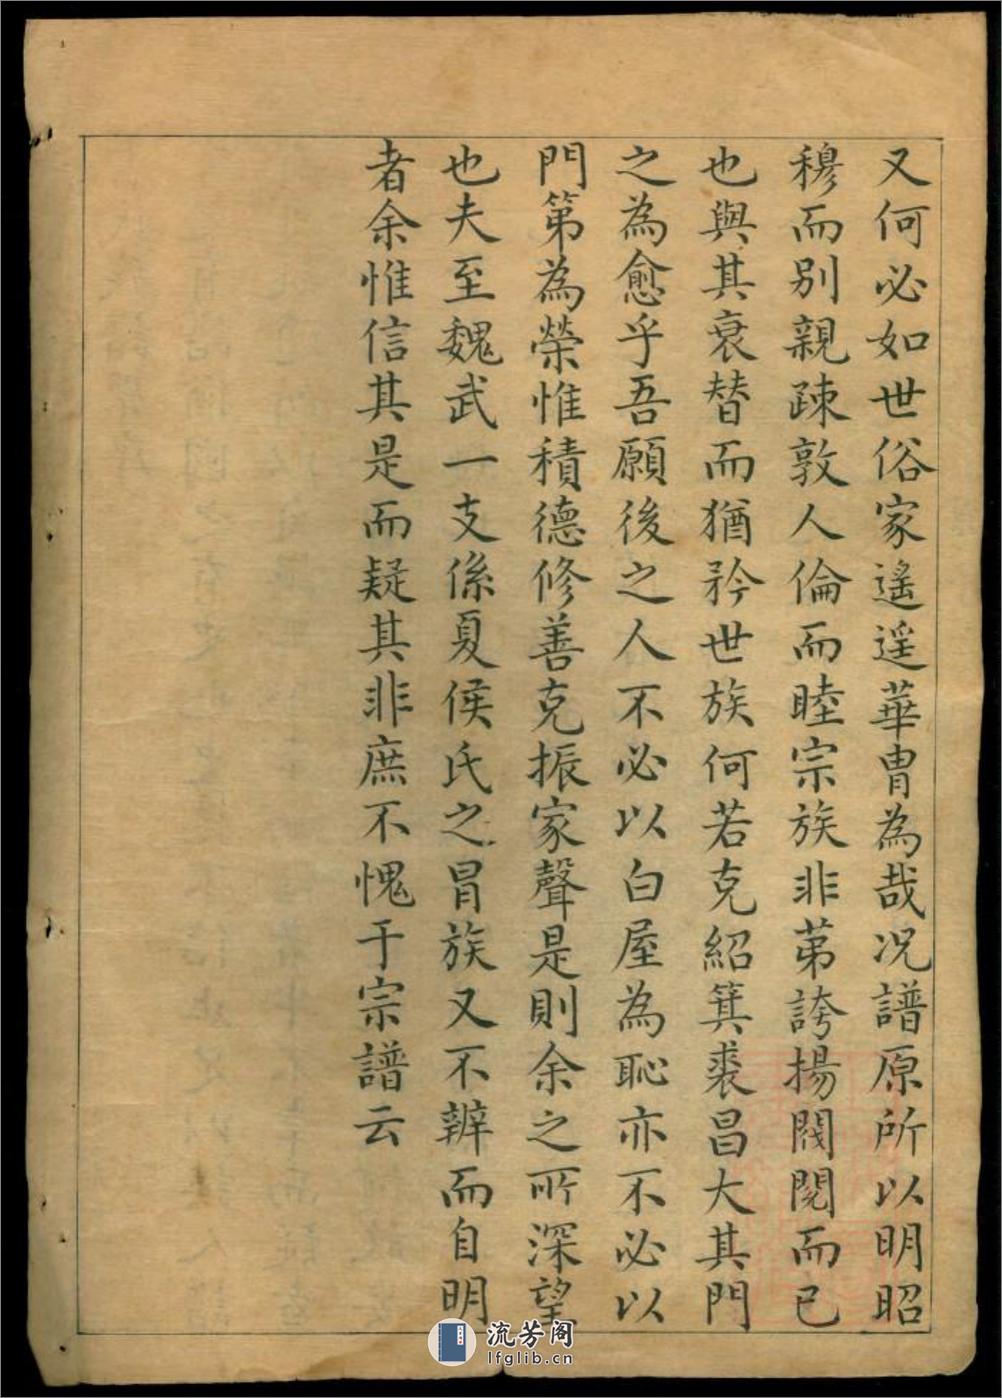 又何必如世俗家遙遙華胄為哉况譜原所以明昭
穆而别親疎敦人倫而睦宗族非苐誇揚閥閱而已
也與其衰替而猶矜世族何若克紹箕裘昌大其門
之為愈乎吾願後之人不必以白屋為恥亦不必以
門第為榮惟積德修善克振家聲是則余之所深望
也夫至魏武一支係夏侯氏之冒族又不辨而自明
者余惟信其是而疑其非庶不愧于宗譜云
流芳阁
lfglib.cn